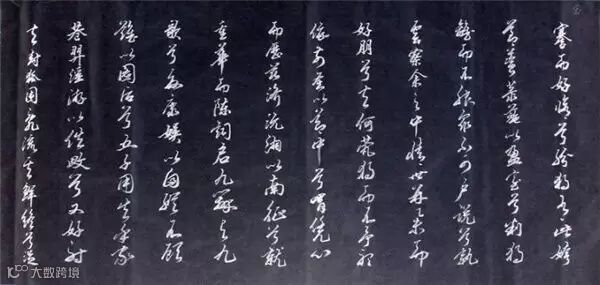 謇而好脩兮紛獨有此姱
節薋菉葹以盈室兮判獨
離而不服眾不可戶說兮孰
云察余之中情世並舉而
好朋兮夫何煢獨而不予聽
依前聖以節中兮喟憑心
而歷茲濟沅湘以南征兮就
重華而陳詞啟九辯與九
歌兮夏康娛以自縱不顧
難以圖後兮五子用失乎家
巷羿淫游以佚畋兮又好射
夫封狐固亂流其鮮終兮浞
大数跨境